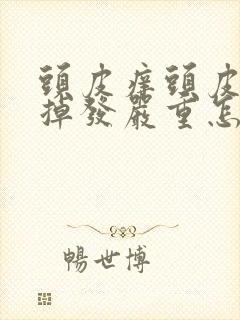 頭皮癢頭皮
掉發嚴重怎
暢世博